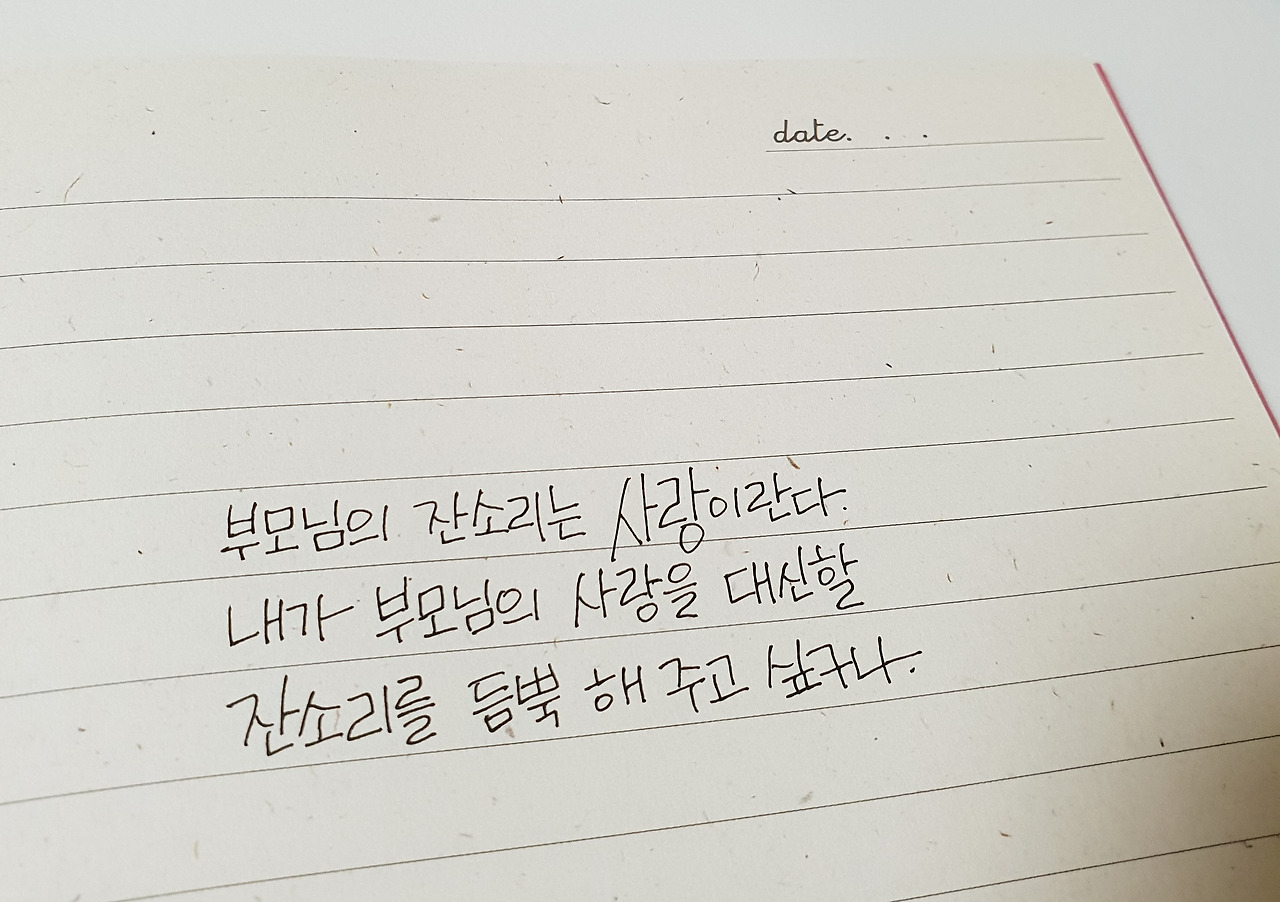 date. . .
부모님의 잔소리는 사랑이란다.
내가 부모님의 사랑을 대신할
잔소리를 듬뿍 해 주고 싶구나.